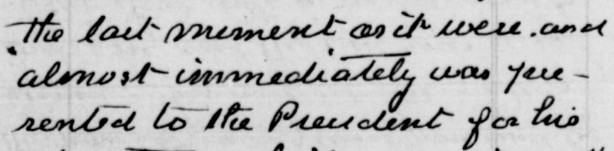 the last moment as it were. and
almost immediately was pre-
sented to the President for his